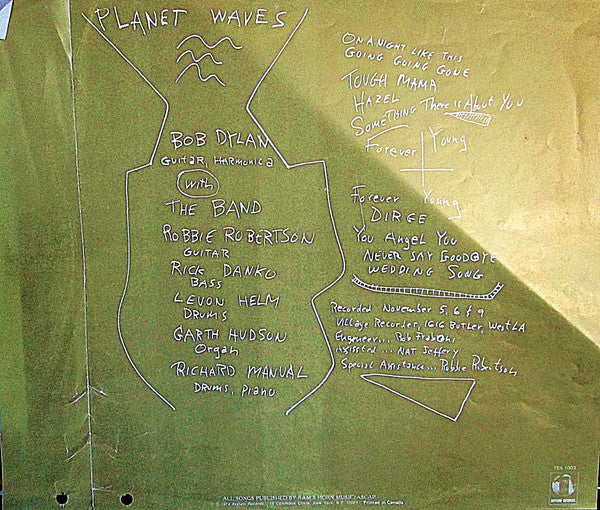 PLANET WAVES
BOB DYLAN
GUITAR, HARMONICA
with
THE BAND
ROBBIE ROBERTSON
GUITAR
RICK DANKO
BASS
LEVON HELM
DRUMS
GARTH HUDSON
Organ
RICHARD MANUAL
DRUMS, PIANO
ON A NIGHT LIKE THIS
GOING GOING GONE
TOUGH MAMA
HAZEL
SOMETHING There is About You
Forever Young
Forever Young
DIRGE
You Angel You
NEVER SAY GOODBYE
WEDDING SONG
Recorded November 5, 6 & 9
Village Recorder, 1616 BUTLER, West LA
Engeneer... Rob Fraboni
Assisted... NAT Jeffery
Special Assistance... Robbie Robertson
ALL SONGS PUBLISHED BY RAM'S HORN MUSIC (ASCAP)
© 1974 Asylum Records 15 Columbus Circle, New York, N.Y. 10023 Printed in Canada
7ES 1003
ASYLUM RECORDS